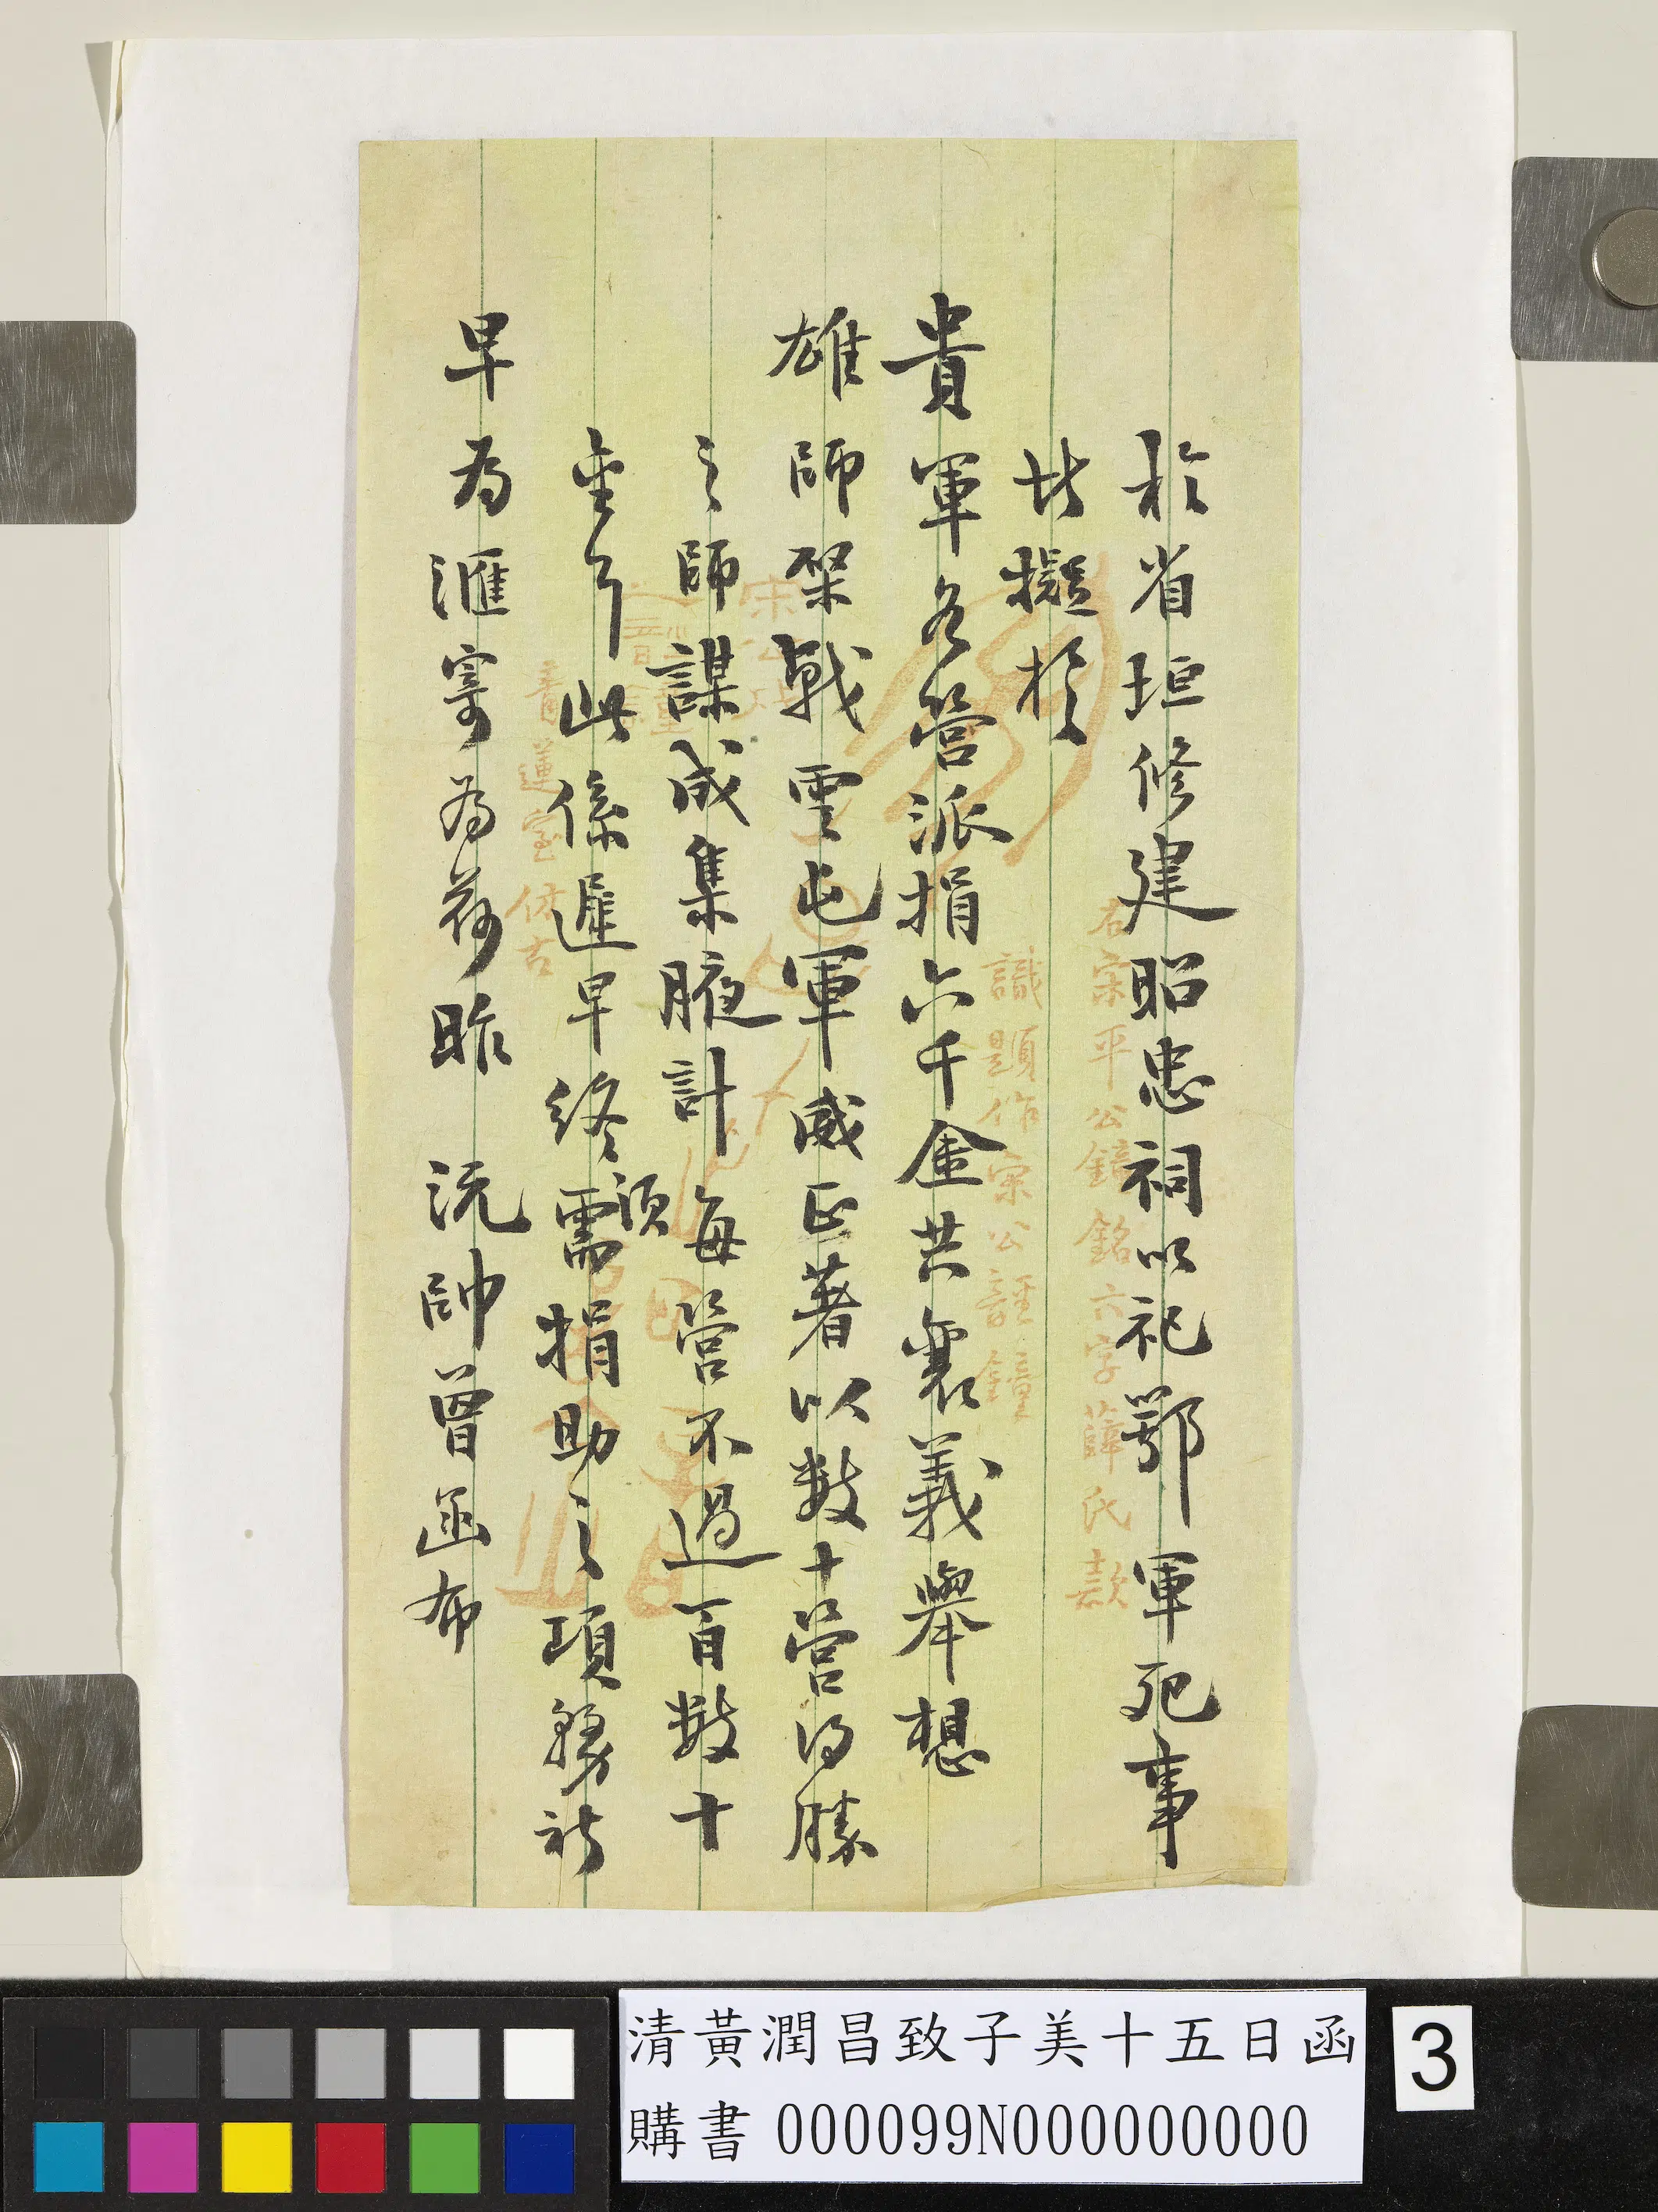 於省垣修建昭忠祠以祀鄂軍死事
者擬於
貴軍各營派捐六千金共襄義舉想
雄師榮戟雲屯軍威正著以數十營得勝
之師謀成集腋計每營不過百數十
金耳此係遲早終須需捐助之項務祈
早為滙寄為荷昨 沅帥曾函布
右宋平公鐘銘六字薛氏款
識題作宋公
蓮室仿古
清黃潤昌致子美十五日函
購書 000099N000000000
3